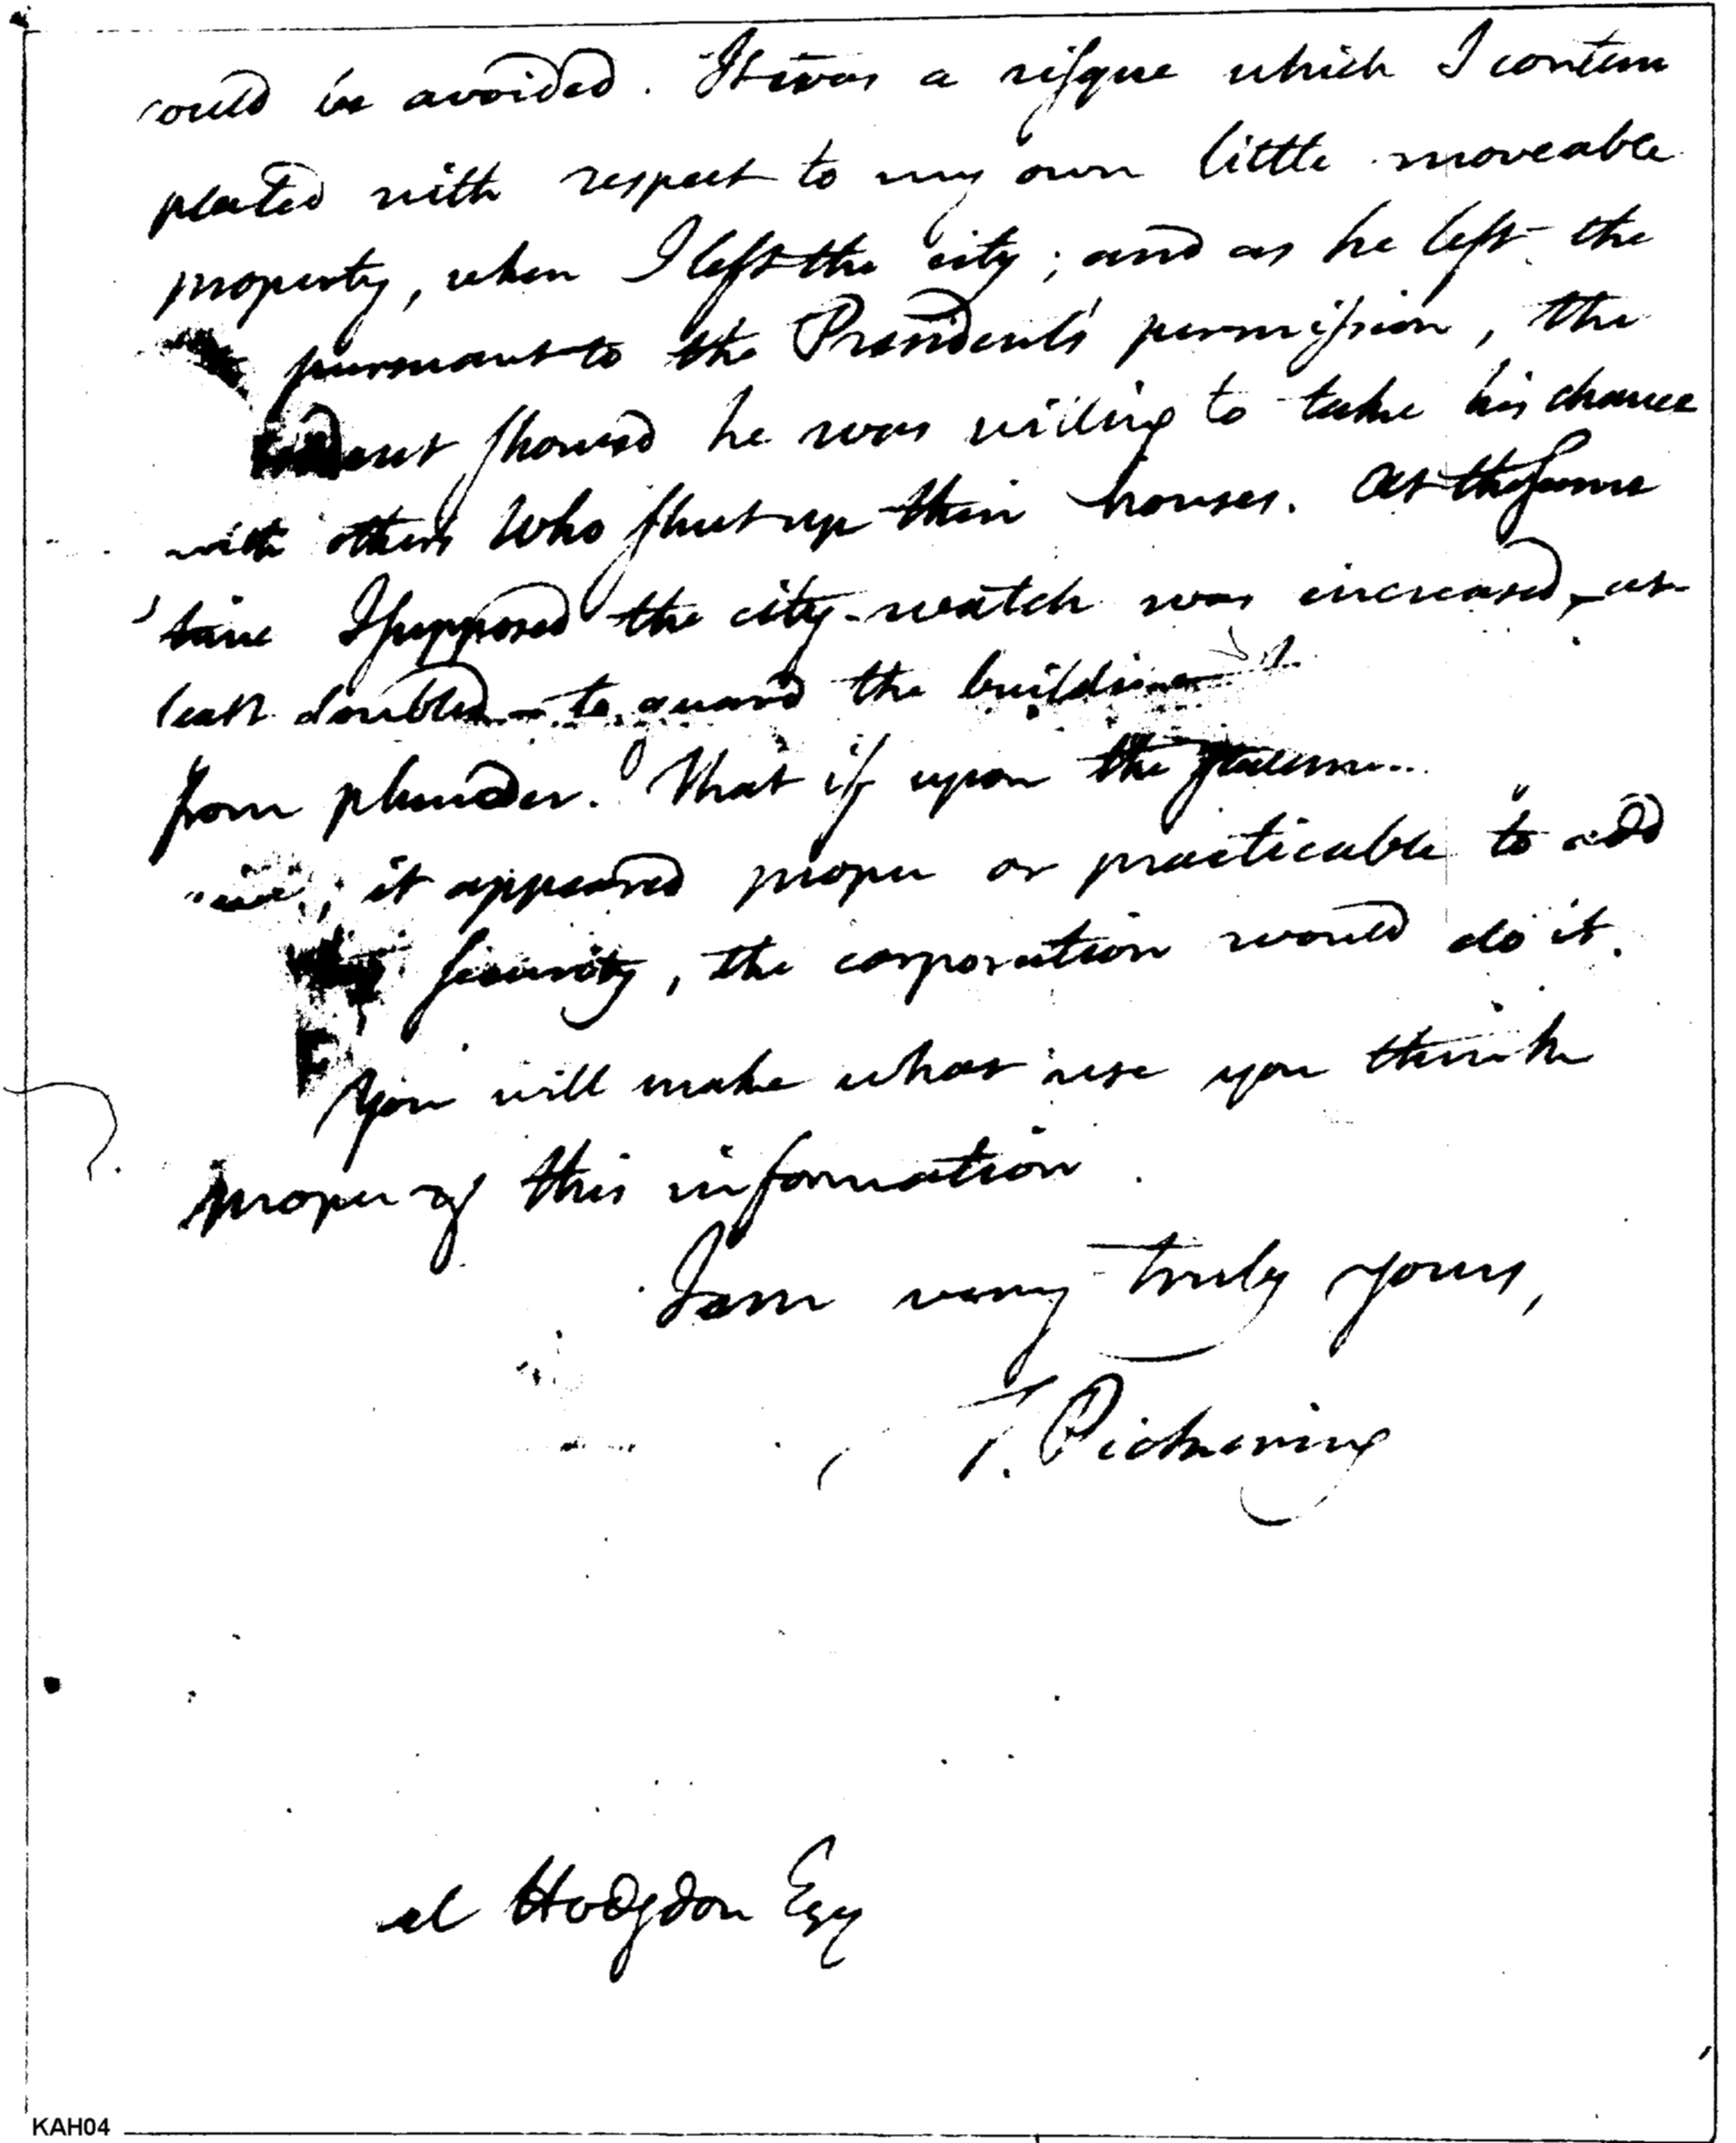 could be avoided. It was a risque which I contem
plated with respect to my own little moveable
property, when I left the city; and as he left the
pursuant to the President's permission, the
showed he was willing to take his chance
with others who shut up their houses. At the same
time I supposed the city-watch was increased, at
least doubled to guard the
from plunder. That if upon the
it appeared proper or practicable to add
security, the corporation would do it.
You will make what use you think
proper of this information.
I am very truly yours,
T. Pickering
el Hodgdon Esq
KAH04